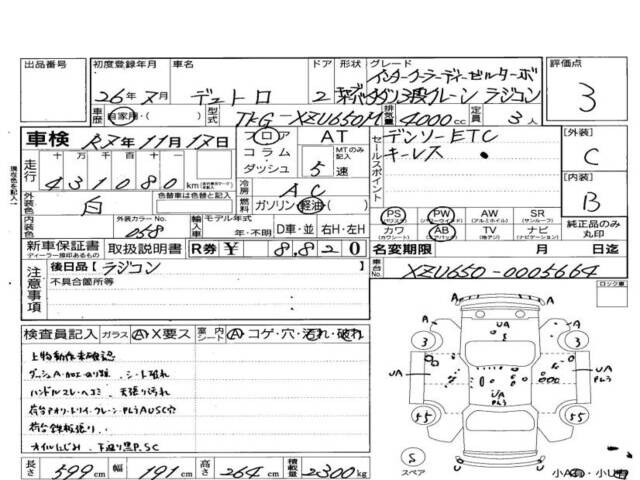 出品番号 初度登録年月 車名 ドア 形状 グレード 評価点
インタークーラーディーゼルターボ
26年7月 デュトロ 2 3段クレーン ラジコン 3
車歴 自家用・( ) 型式 TKG-XZU650M 排気量 4000cc 定員 3人
車検 R7年11月17日
フロア コラム・ダッシュ AT MTのみ記入 5速
セールスポイント デンソーETC
キーレス
[外装] C
[内装] B
走行 十 万 千 百 十 431080km
冷房 AC
燃料 ガソリン 軽油・( )
外装色 白 色替車は色替と記入
内装色 外装カラーNo. 058 輸入車 モデル年式 年・不明 D車・並 右H・左H
PS PW AW SR
(パワステ) (パワーウインド) (アルミホイル) (サンルーフ)
カワ AB TV ナビ
(カワシート) (エアバック) (地デジ) (ナビゲーション)
純正品のみ丸印
新車保証書 取扱説明書 R券 ¥ 8,820
ディーラー捺印あるもの
名変期限 月 日迄
注意事項 後日品[ラジコン
不具合箇所等
車台No. XZU650-0005664
ロック車
検査員記入 ガラス A・X要ス 室内シート A・コゲ・穴・汚れ・破れ
上物動作未確認
シート破れ
ハンドルスレ・ヘコミ 天張り汚れ
荷台鉄板張り
オイルにじみ 下廻り黒P.SC
A A UA A A
3 3
UA UA Pムラ
UA Pムラ
55 55
S
スペア
長さ 599cm 幅 191cm 高さ 264cm 積載量 2300kg